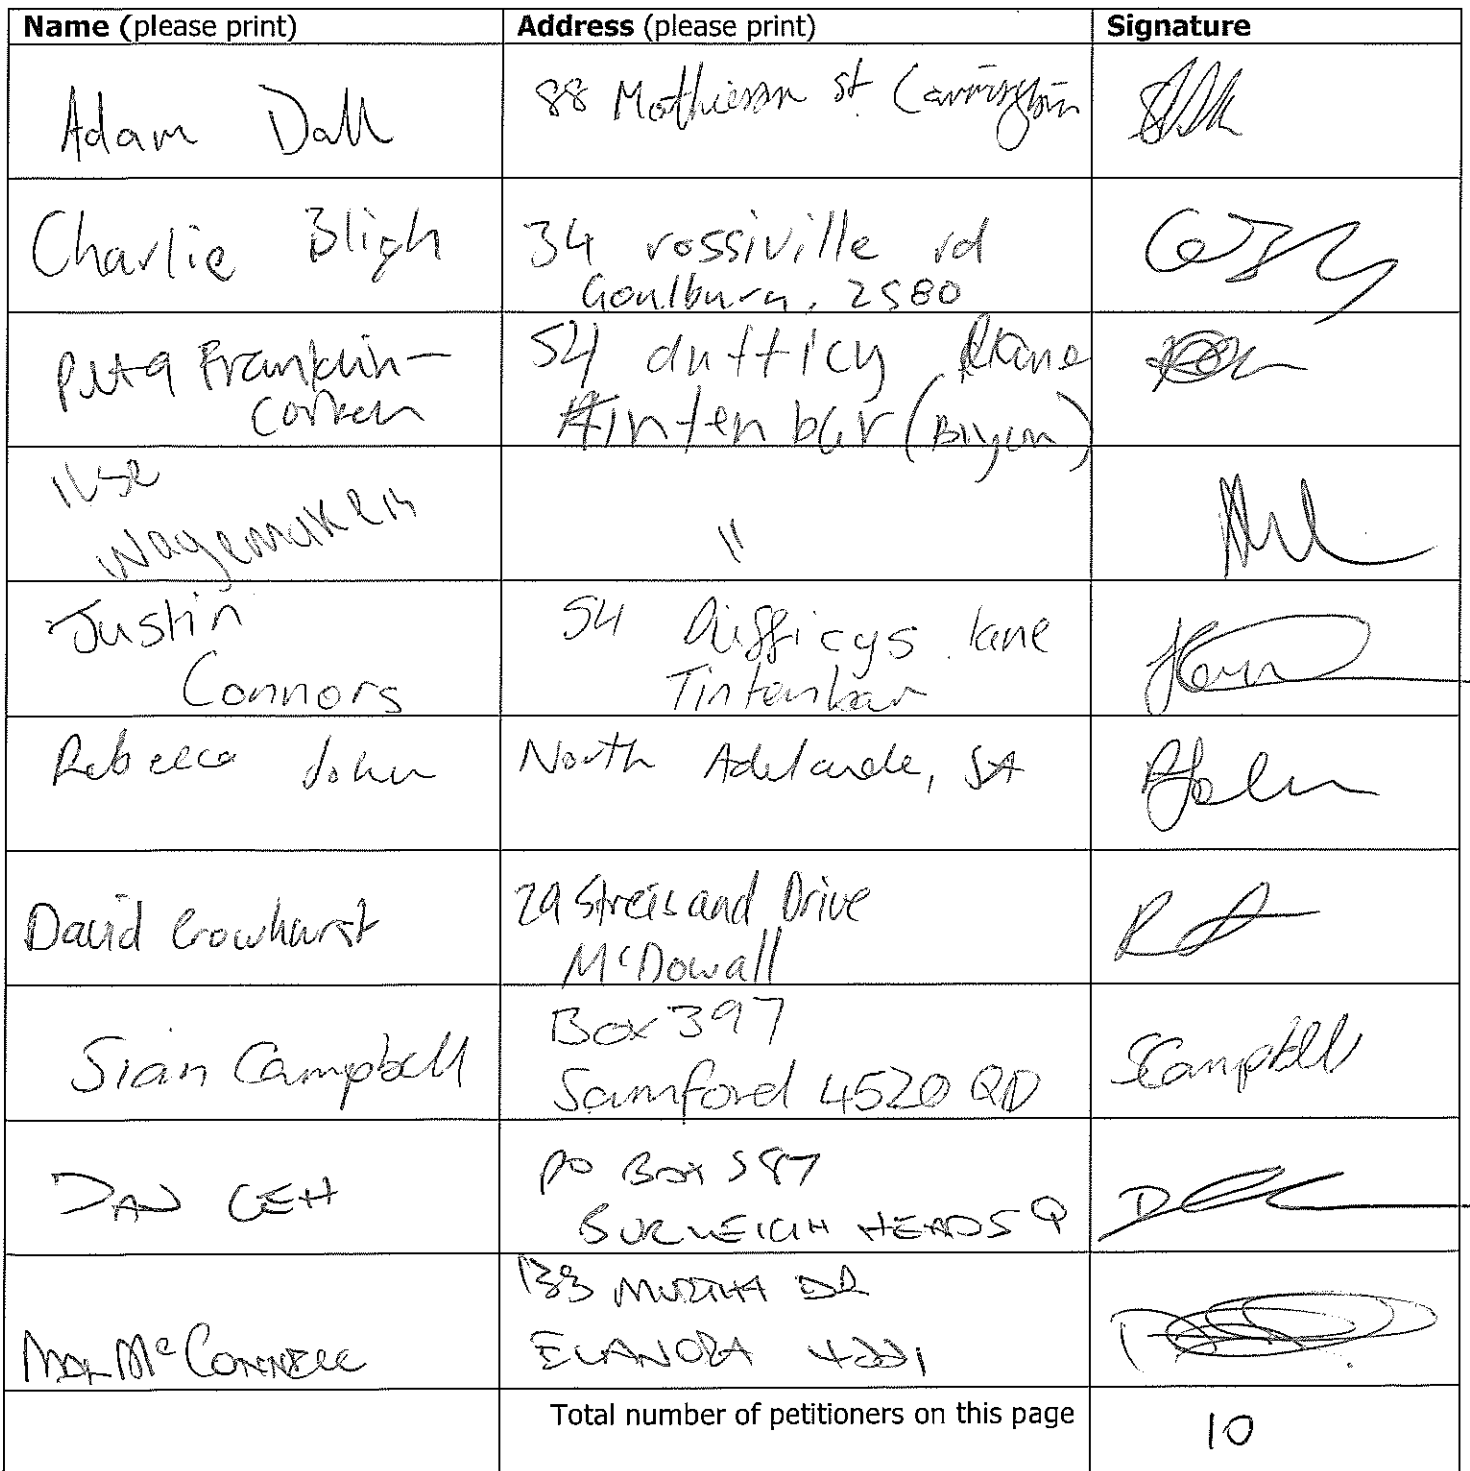 Name (please print) Address (please print) Signature
Adam Dall 88 Mathieson st. Carrington
Charlie Bligh 34 rossiville rd
Goulburn, 2580
Peta Franklin- 54 dufficy lane
Corken tintenbar (Byron)
Ilse
Wagemakers "
Justin 54 Dufficys lane
Connors Tintenbar
Rebecca John North Adelaide, SA
David Crowhurst 29 Streisand Drive
McDowall
Sian Campbell Box 397 SCampbell
Samford 4520 QD
DAN CEH PO BOX 587
BURLEIGH HEADS Q
133 MURTHA DR
MAL McCONNELL ELANORA 4221
Total number of petitioners on this page 10